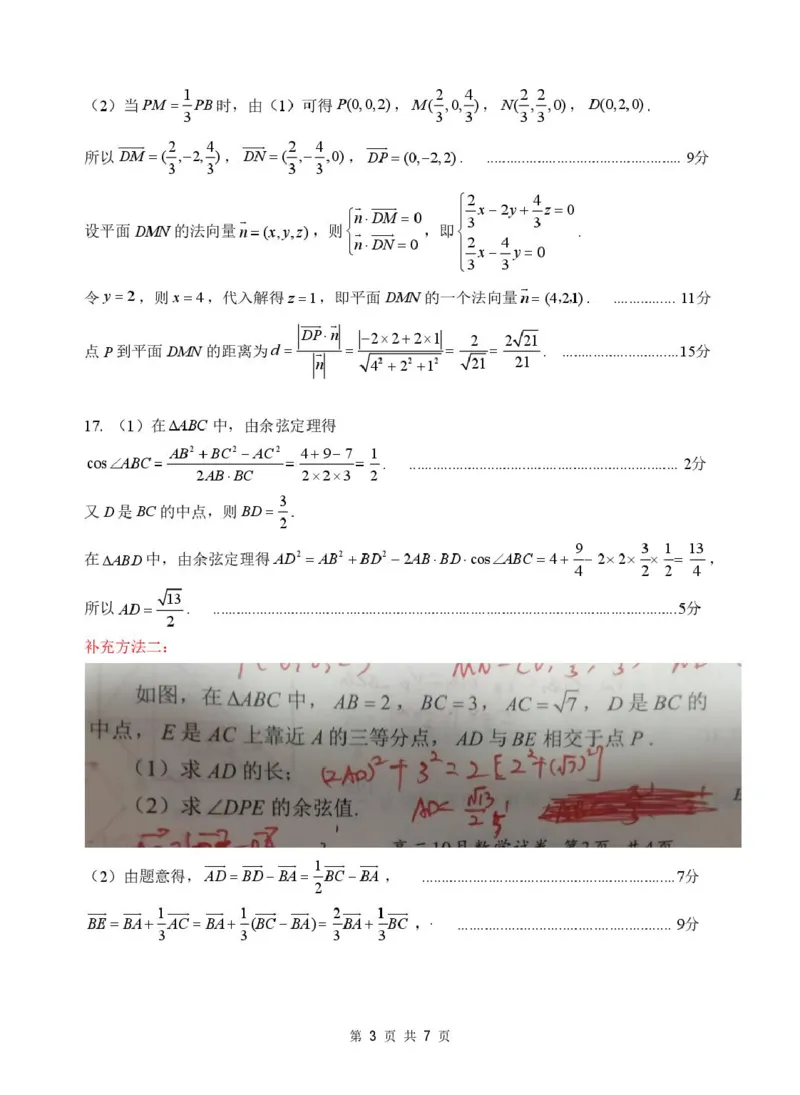 （2）当PM = 1/3 PB时，由（1）可得P(0,0,2)，M(2/3,0,4/3)，N(2/3,2/3,0)，D(0,2,0).
所以DM→=(2/3,−2,4/3)，DN→=(2/3,−4/3,0)，DP→=(0,−2,2). ................ 9分
设平面DMN的法向量n→=(x,y,z)，则{n→·DM→=0, n→·DN→=0，即{2/3x−2y+4/3z=0, 2/3x−4/3y=0.
令y=2，则x=4，代入解得z=1，即平面DMN的一个法向量n→=(4,2,1). ................ 11分
点P到平面DMN的距离为d=|DP→·n→|/|n→|=|−2×2+2×1|/√(4²+2²+1²)=2/√21=2√21/21. ................15分
17. （1）在ΔABC中，由余弦定理得
cos∠ABC=(AB²+BC²−AC²)/(2AB·BC)=(4+9−7)/(2×2×3)=1/2. ................ 2分
又D是BC的中点，则BD=3/2.
在ΔABD中，由余弦定理得AD²=AB²+BD²−2AB·BD·cos∠ABC=4+9/4−2×2×3/2×1/2=13/4，
所以AD=√13/2. ................5分
补充方法二：
如图，在ΔABC中，AB=2，BC=3，AC=√7，D是BC的
中点，E是AC上靠近A的三等分点，AD与BE相交于点P.
（1）求AD的长； (2AD)²+3²=2[2²+(√7)²]
（2）求∠DPE的余弦值. AD=√13/2 5'
（2）由题意得，AD→=BD→−BA→=1/2BC→−BA→， ................7分
BE→=BA→+1/3AC→=BA→+1/3(BC→−BA→)=2/3BA→+1/3BC→， ................ 9分
第 3 页 共 7 页